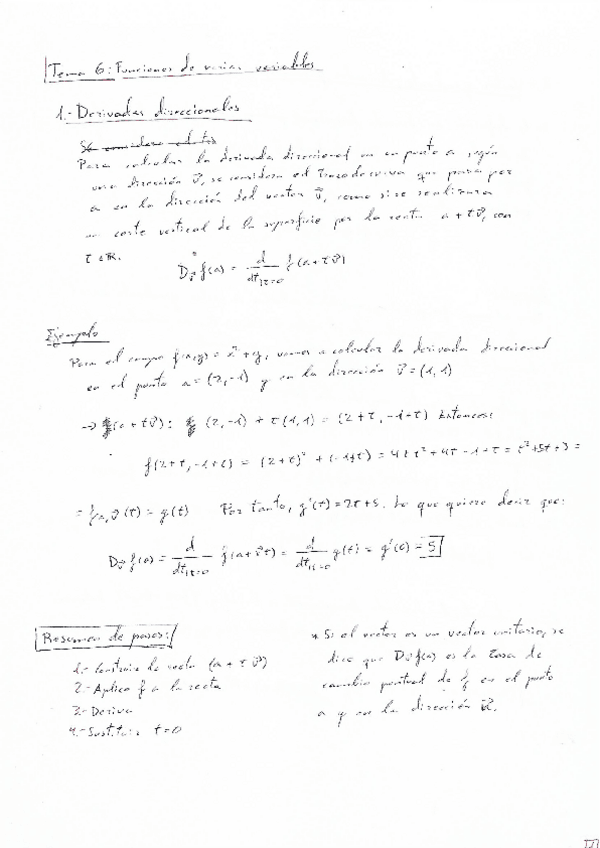 Tema 6: Funciones de varias variables
1.- Derivadas direccionales
Se considera el
Para calcular la derivada direccional en un punto a, según
una dirección v⃗, se considera el trozo de curva que pasa por
a en la dirección del vector v⃗, como si se realizara
un corte vertical de la superficie por la recta a + tv⃗, con
t ∈ ℝ.
D_v⃗ f(a) = d/dt|t=0 f(a + tv⃗)
Ejemplo
Para el campo f(x,y) = x² + y, vamos a calcular la derivada direccional
en el punto a = (2,-1) y en la dirección v⃗ = (1,1)
→ (a + tv⃗): (2,-1) + t(1,1) = (2+t, -1+t) Entonces:
f(2+t, -1+t) = (2+t)² + (-1+t) = 4 + t² + 4t - 1 + t = t² + 5t + 3 =
= f a,v⃗ (t) = g(t) Por tanto, g'(t) = 2t + 5. Lo que quiere decir que:
D_v⃗ f(a) = d/dt|t=0 f(a + v⃗t) = d/dt|t=0 g(t) = g'(0) = 5
Resumen de pasos:
1.- Construir la recta (a + tv⃗)
2.- Aplico f a la recta
3.- Derivo
4.- Sustituir t=0
* Si el vector es un vector unitario, se
dice que D_v⃗ f(a) es la tasa de
cambio puntual de f en el punto
a y en la dirección v⃗.